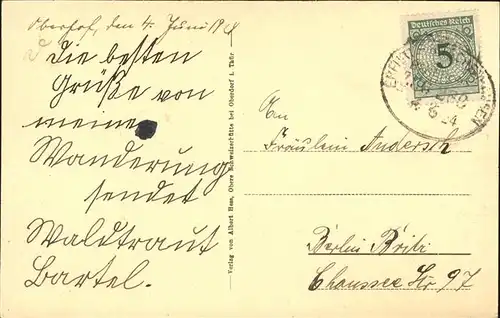 Oberhof, den 4. Juni 1924
Die besten
Grüße von
meiner
Wanderung
sendet
Waldtraut
Bartel.
Verlag von Albert Hess, Obere Schweizerhütte bei Oberdorf i. Thür.
Deutsches Reich
5
24
An
Fräulein Andersch
Berlin Britz
Chaussee Str 97